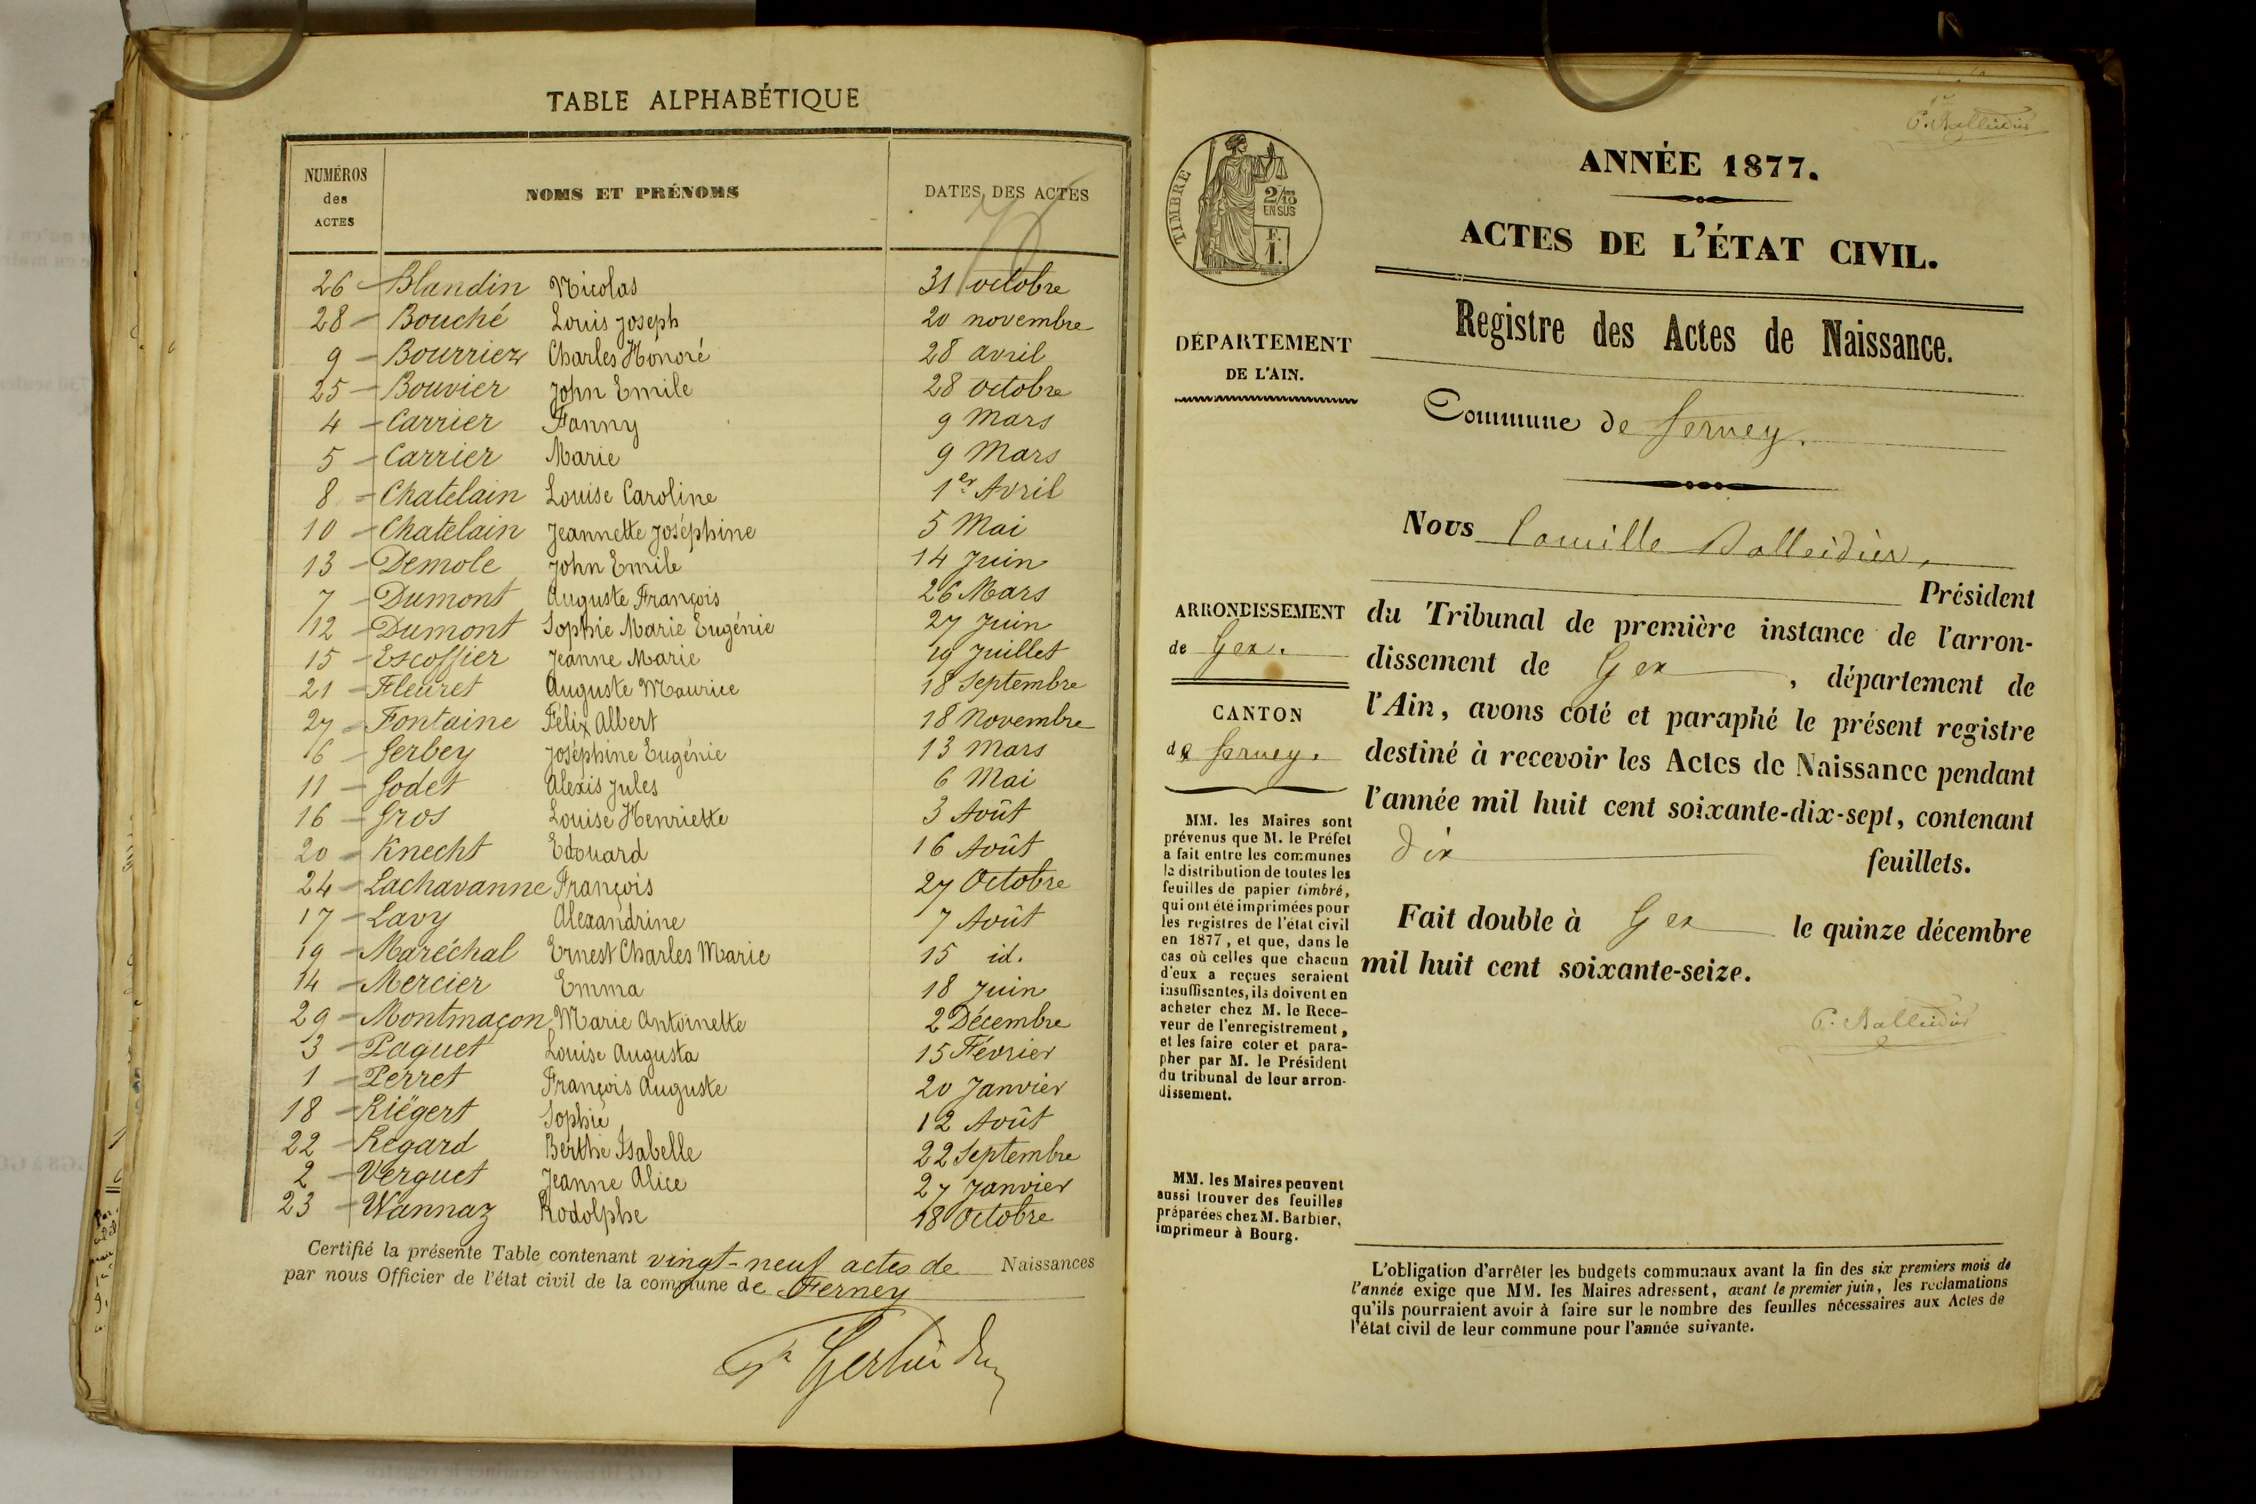 TABLE ALPHABÉTIQUE
NUMÉROS des ACTES NOMS ET PRÉNOMS DATES DES ACTES
76
26 - Blandin Nicolas 31 octobre
28 - Bouché Louis Joseph 20 novembre
9 - Bourriez Charles Honoré 28 avril
25 - Bouvier John Emile 28 octobre
4 - Carrier Fanny 9 Mars
5 - Carrier Marie 9 Mars
8 - Chatelain Louise Caroline 1er Avril
10 - Chatelain Jeannette Joséphine 5 Mai
13 - Demole John Emile 14 Juin
7 - Dumont Auguste François 26 Mars
12 - Dumont Sophie Marie Eugénie 27 Juin
15 - Escoffier Jeanne Marie 19 Juillet
21 - Fleuret Auguste Maurice 18 Septembre
27 - Fontaine Félix Albert 18 Novembre
6 - Gerbey Joséphine Eugénie 13 Mars
11 - Godet Alexis Jules 6 Mai
16 - Gros Louise Henriette 3 Août
20 - Knecht Edouard 16 Août
24 - Lachavanne François 27 Octobre
17 - Lavy Alexandrine 7 Août
19 - Maréchal Ernest Charles Marie 15 id.
14 - Mercier Emma 18 Juin
29 - Montmaçon Marie Antoinette 2 Décembre
3 - Paquet Louise Augusta 15 Février
1 - Perret François Auguste 20 Janvier
18 - Riëgert Sophie 12 Août
22 - Régard Berthe Isabelle 22 Septembre
2 - Verguet Jeanne Alice 27 Janvier
23 - Wannaz Rodolphe 18 Octobre
Certifié la présente Table contenant vingt-neuf actes de Naissances
par nous Officier de l'état civil de la commune de Ferney
C. Balleidier
TIMBRE
2/10 EN SUS
F. 1.
ANNÉE 1877.
ACTES DE L'ÉTAT CIVIL.
Registre des Actes de Naissance.
DÉPARTEMENT
DE L'AIN.
Commune de Ferney.
Nous Camille Balleidier,
Président
ARRONDISSEMENT
de Gex.
CANTON
de Ferney.
du Tribunal de première instance de l'arron-
dissement de Gex, département de
l'Ain, avons coté et paraphé le présent registre
destiné à recevoir les Actes de Naissance pendant
l'année mil huit cent soixante-dix-sept, contenant
dix feuillets.
Fait double à Gex le quinze décembre
mil huit cent soixante-seize.
C. Balleidier
MM. les Maires sont
prévenus que M. le Préfet
a fait entre les communes
la distribution de toutes les
feuilles de papier timbré,
qui ont été imprimées pour
les registres de l'état civil
en 1877, et que, dans le
cas où celles que chacun
d'eux a reçues seraient
insuffisantes, ils doivent en
acheter chez M. le Rece-
veur de l'enregistrement,
et les faire coter et para-
pher par M. le Président
du tribunal de leur arron-
dissement.
MM. les Maires peuvent
aussi trouver des feuilles
préparées chez M. Barbier,
imprimeur à Bourg.
L'obligation d'arrêter les budgets communaux avant la fin des six premiers mois de
l'année exige que MM. les Maires adressent, avant le premier juin, les réclamations
qu'ils pourraient avoir à faire sur le nombre des feuilles nécessaires aux Actes de
l'état civil de leur commune pour l'année suivante.